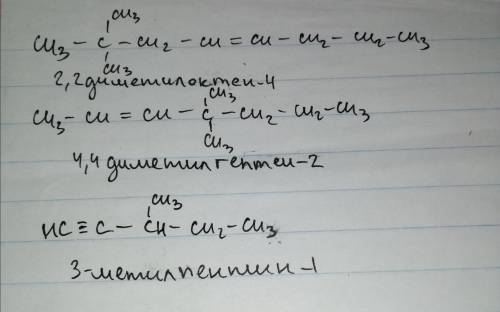 CH₃
CH₃ – C – CH₂ – CH = CH – CH₂ – CH₂ – CH₃
CH₃
2,2диметилоктен-4
CH₃
CH₃ – CH = CH – C – CH₂ – CH₂ – CH₃
CH₃
4,4 диметилгептен-2
CH₃
HC ≡ C – CH – CH₂ – CH₃
3-метилпентин-1